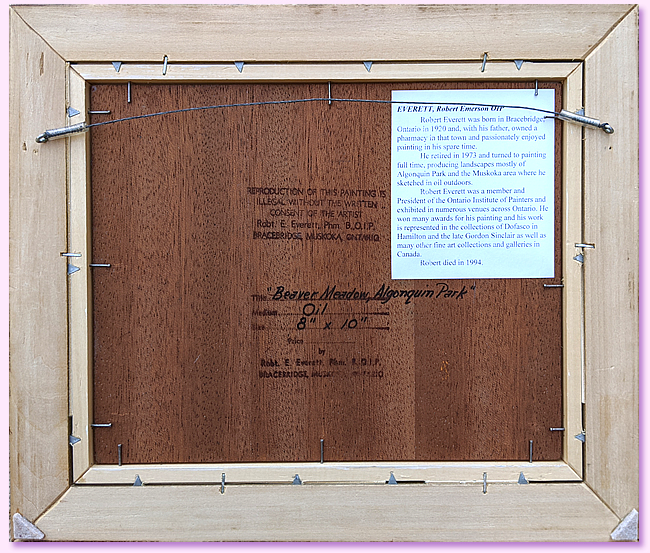 EVERETT, Robert Emerson Orr
Robert Everett was born in Bracebridge,
Ontario in 1920 and, with his father, owned a
pharmacy in that town and passionately enjoyed
painting in his spare time.
He retired in 1973 and turned to painting
full time, producing landscapes mostly of
Algonquin Park and the Muskoka area where he
sketched in oil outdoors.
Robert Everett was a member and
President of the Ontario Institute of Painters and
exhibited in numerous venues across Ontario. He
won many awards for his painting and his work
is represented in the collections of Dofasco in
Hamilton and the late Gordon Sinclair as well as
many other fine art collections and galleries in
Canada.
Robert died in 1994.
REPRODUCTION OF THIS PAINTING IS
ILLEGAL WITHOUT THE WRITTEN
CONSENT OF THE ARTIST
Robt. E. Everett, Phm. B.,O.I.P.
BRACEBRIDGE, MUSKOKA, ONTARIO
Title "Beaver Meadow, Algonquin Park"
Medium Oil
Size 8" x 10"
Price
by
Robt. E. Everett, Phm. B.,O.I.P.
BRACEBRIDGE, MUSKOKA, ONTARIO